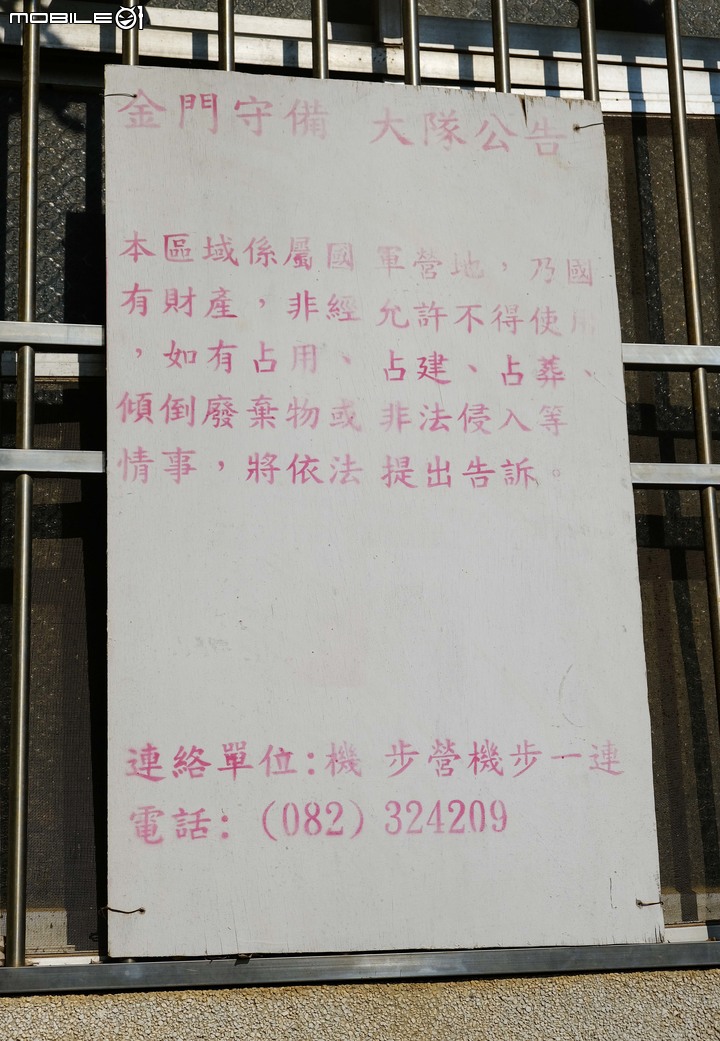 MOBILE01
金門守備 大隊公告
本區域係屬國 軍營地，乃國
有財產，非經 允許不得使用
，如有占用、 占建、占葬、
傾倒廢棄物或 非法侵入等
情事，將依法 提出告訴。
連絡單位:機 步營機步一連
電話: (082) 324209